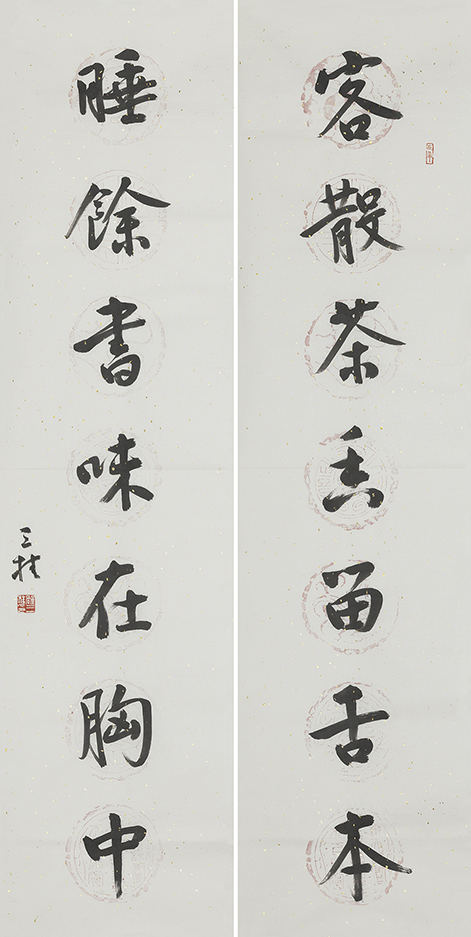 客散茶香留舌本
睡餘書味在胸中
三桂